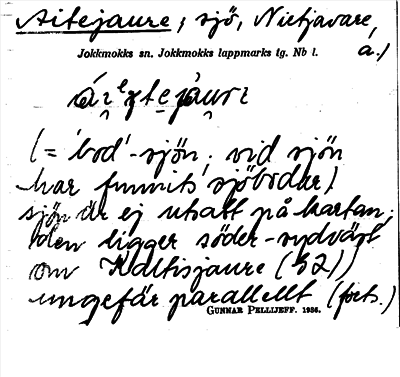 Aitejaure, sjö, Nietjavare,
Jokkmokks sn. Jokkmokks lappmarks tg. Nb l. a.)
(= 'bod'-sjön; vid sjön
har funnits sjöbodar)
sjön är ej utsatt på kartan;
den ligger söder-sydväst
om Kaltisjaure (52))
ungefär parallellt (forts.)
GUNNAR PELLIJEFF. 1936.